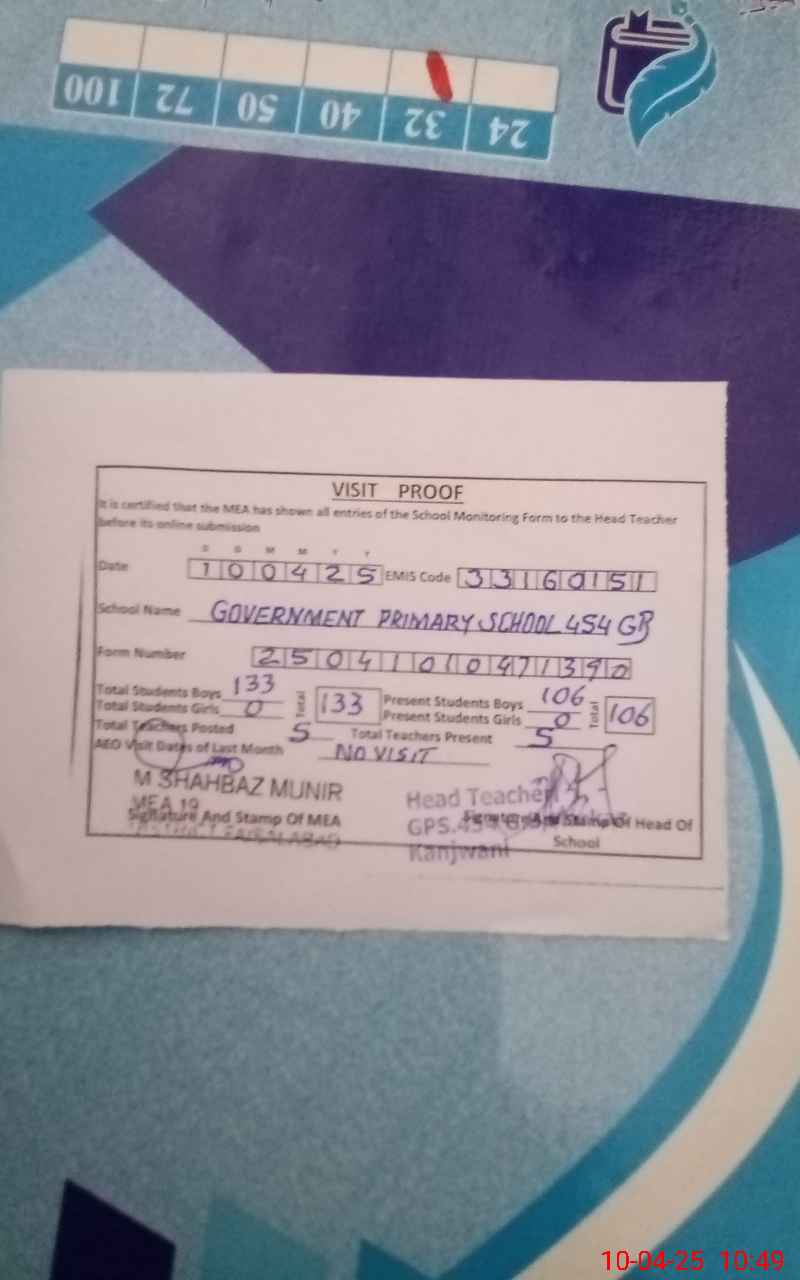 100 72 50 40 32 24
VISIT PROOF
It is certified that the MEA has shown all entries of the School Monitoring Form to the Head Teacher
before its online submission
D D M M Y Y
Date 100425 EMIS Code 33160151
School Name GOVERNMENT PRIMARY SCHOOL 454 GB
Form Number 25041010471390
Total Students Boys 133 Total 133 Present Students Boys 106 Total 106
Total Students Girls 0 Present Students Girls 0
Total Teachers Posted 5 Total Teachers Present 5
AEO Visit Dates of Last Month NO VISIT
M SHAHBAZ MUNIR
MEA 19
Signature And Stamp Of MEA
Head Teacher
GPS.454 G.B
Signature And Stamp Of Head Of
School
Kanjwani
10-04-25 10:49